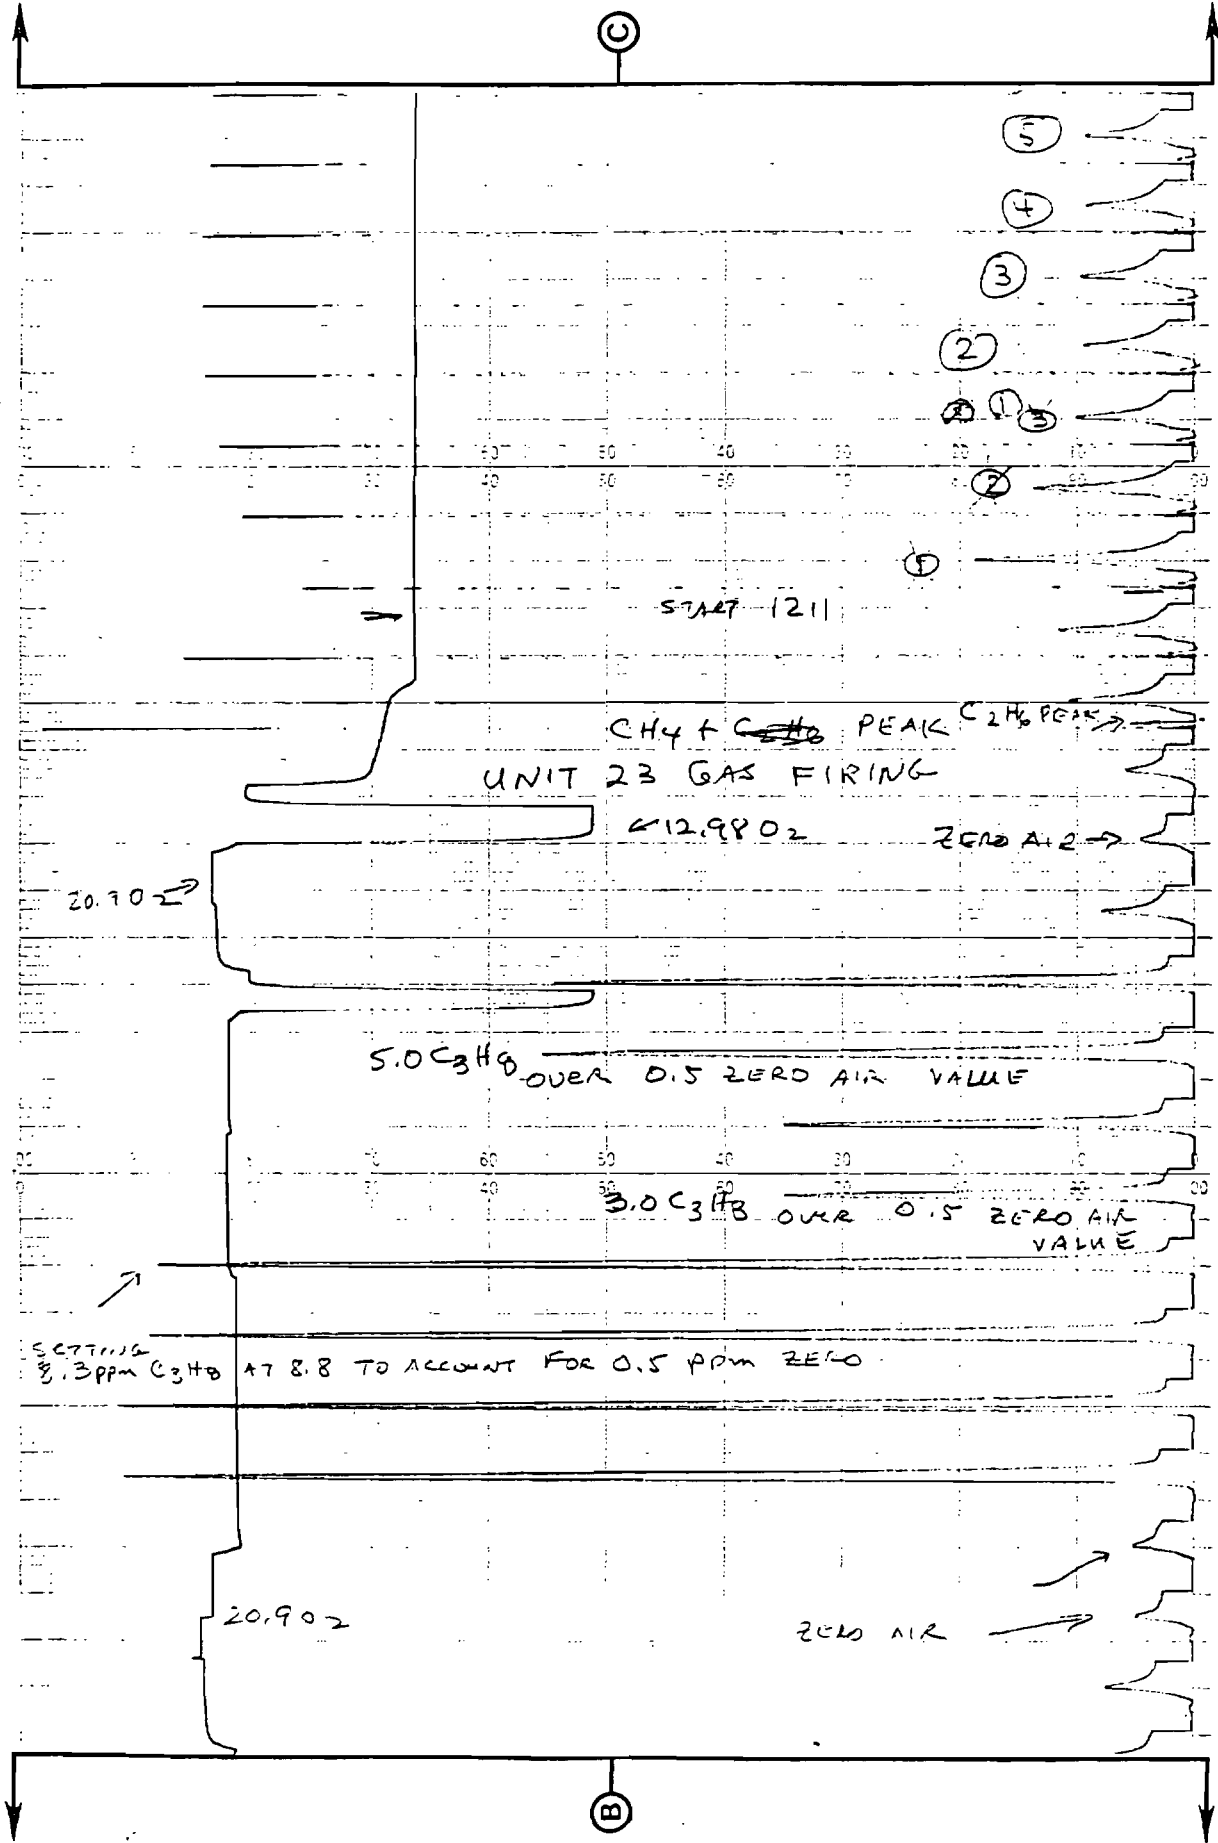 C
5
4
3
2
2 1 3
2
1
START 1211
CH4 + C2H6 PEAK C2H6 PEAK
UNIT 23 GAS FIRING
12.98 O2
ZERO AIR
20.9 O2
5.0 C3H8
OVER 0.5 ZERO AIR VALUE
3.0 C3H8 OVER 0.5 ZERO AIR
VALUE
SETTING
8.3ppm C3H8 AT 8.8 TO ACCOUNT FOR 0.5 ppm ZERO
20.9 O2
ZERO AIR
B